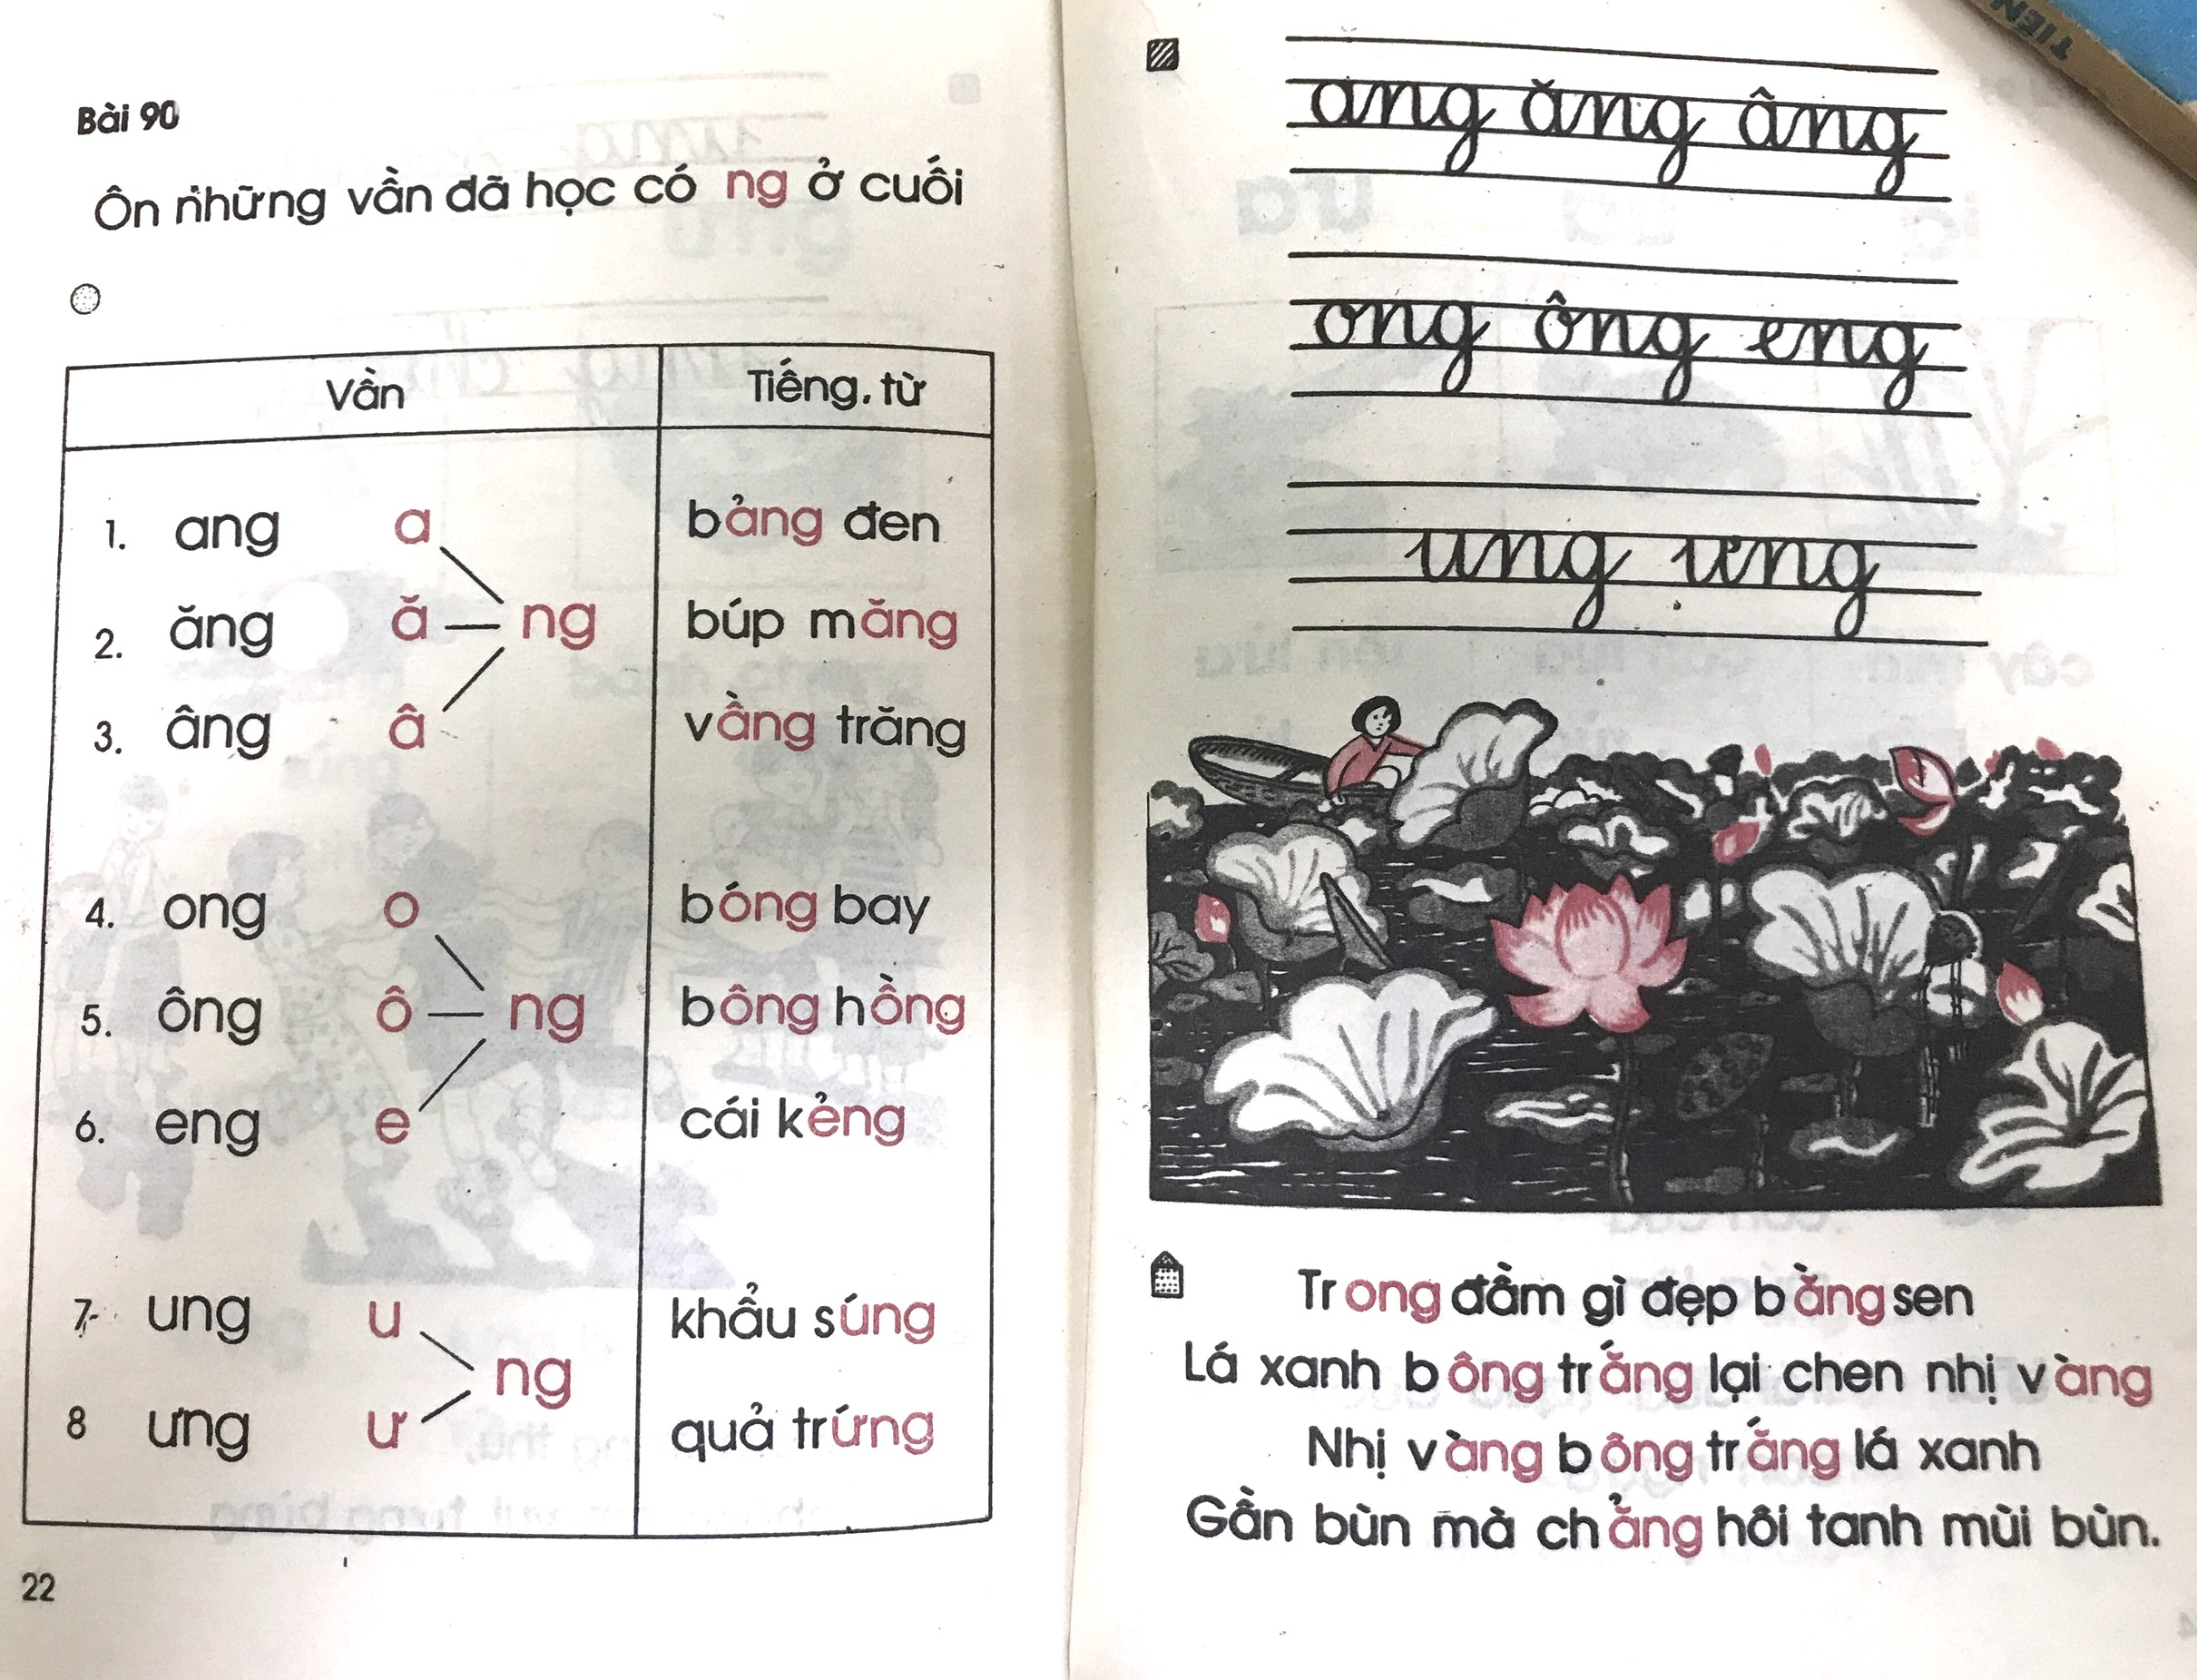 Bài 90
Ôn những vần đã học có ng ở cuối
Vần Tiếng, từ
1. ang a bảng đen
2. ăng ă ng búp măng
3. âng â vầng trăng
4. ong o bóng bay
5. ông ô ng bông hồng
6. eng e cái kẻng
7. ung u khẩu súng
ng
8 ưng ư quả trứng
22
ang ăng âng
ong ông eng
ung ưng
Trong đầm gì đẹp bằng sen
Lá xanh bông trắng lại chen nhị vàng
Nhị vàng bông trắng lá xanh
Gần bùn mà chẳng hôi tanh mùi bùn.